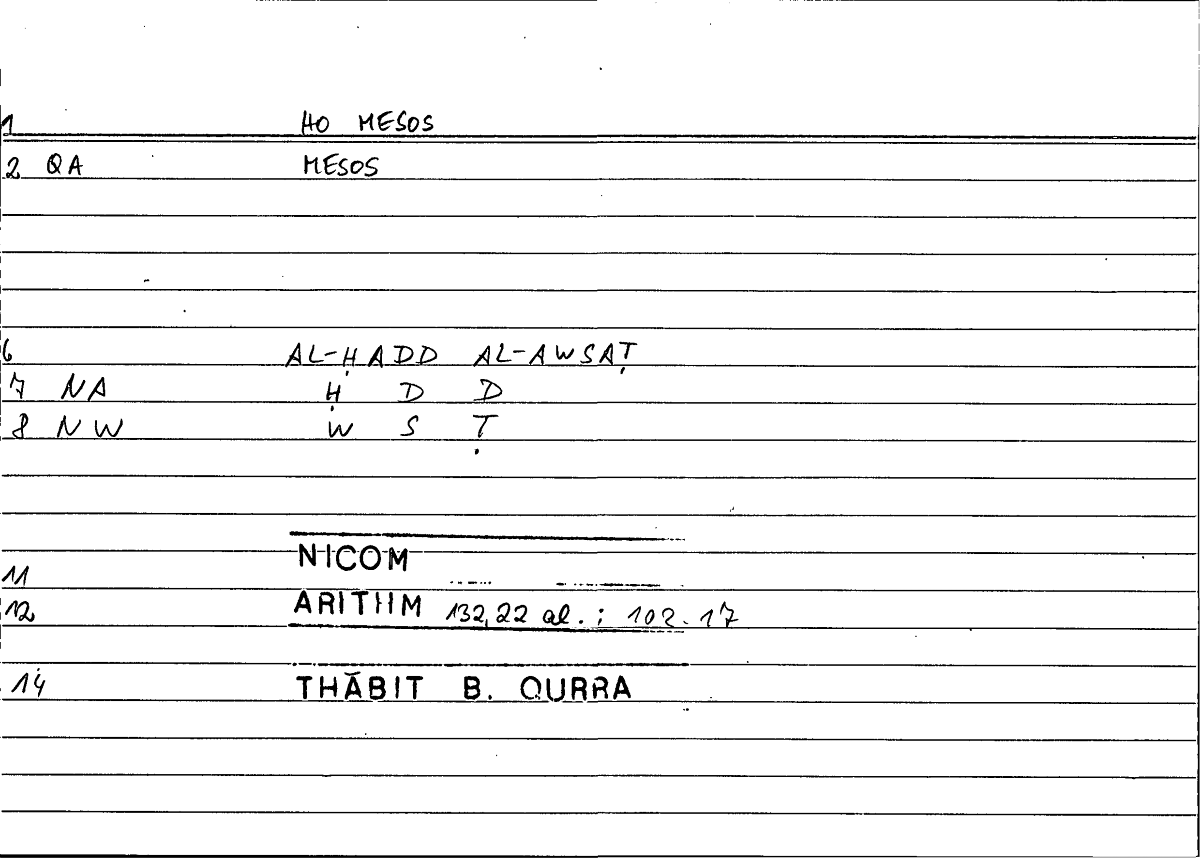 1 HO MESOS
2 QA MESOS
6 AL-ḤADD AL-AWSAṬ
7 NA Ḥ D D
8 NW W S Ṭ
11 NICOM
12 ARITHM 132,22 al. ; 102.17
14 THĀBIT B. QURRA